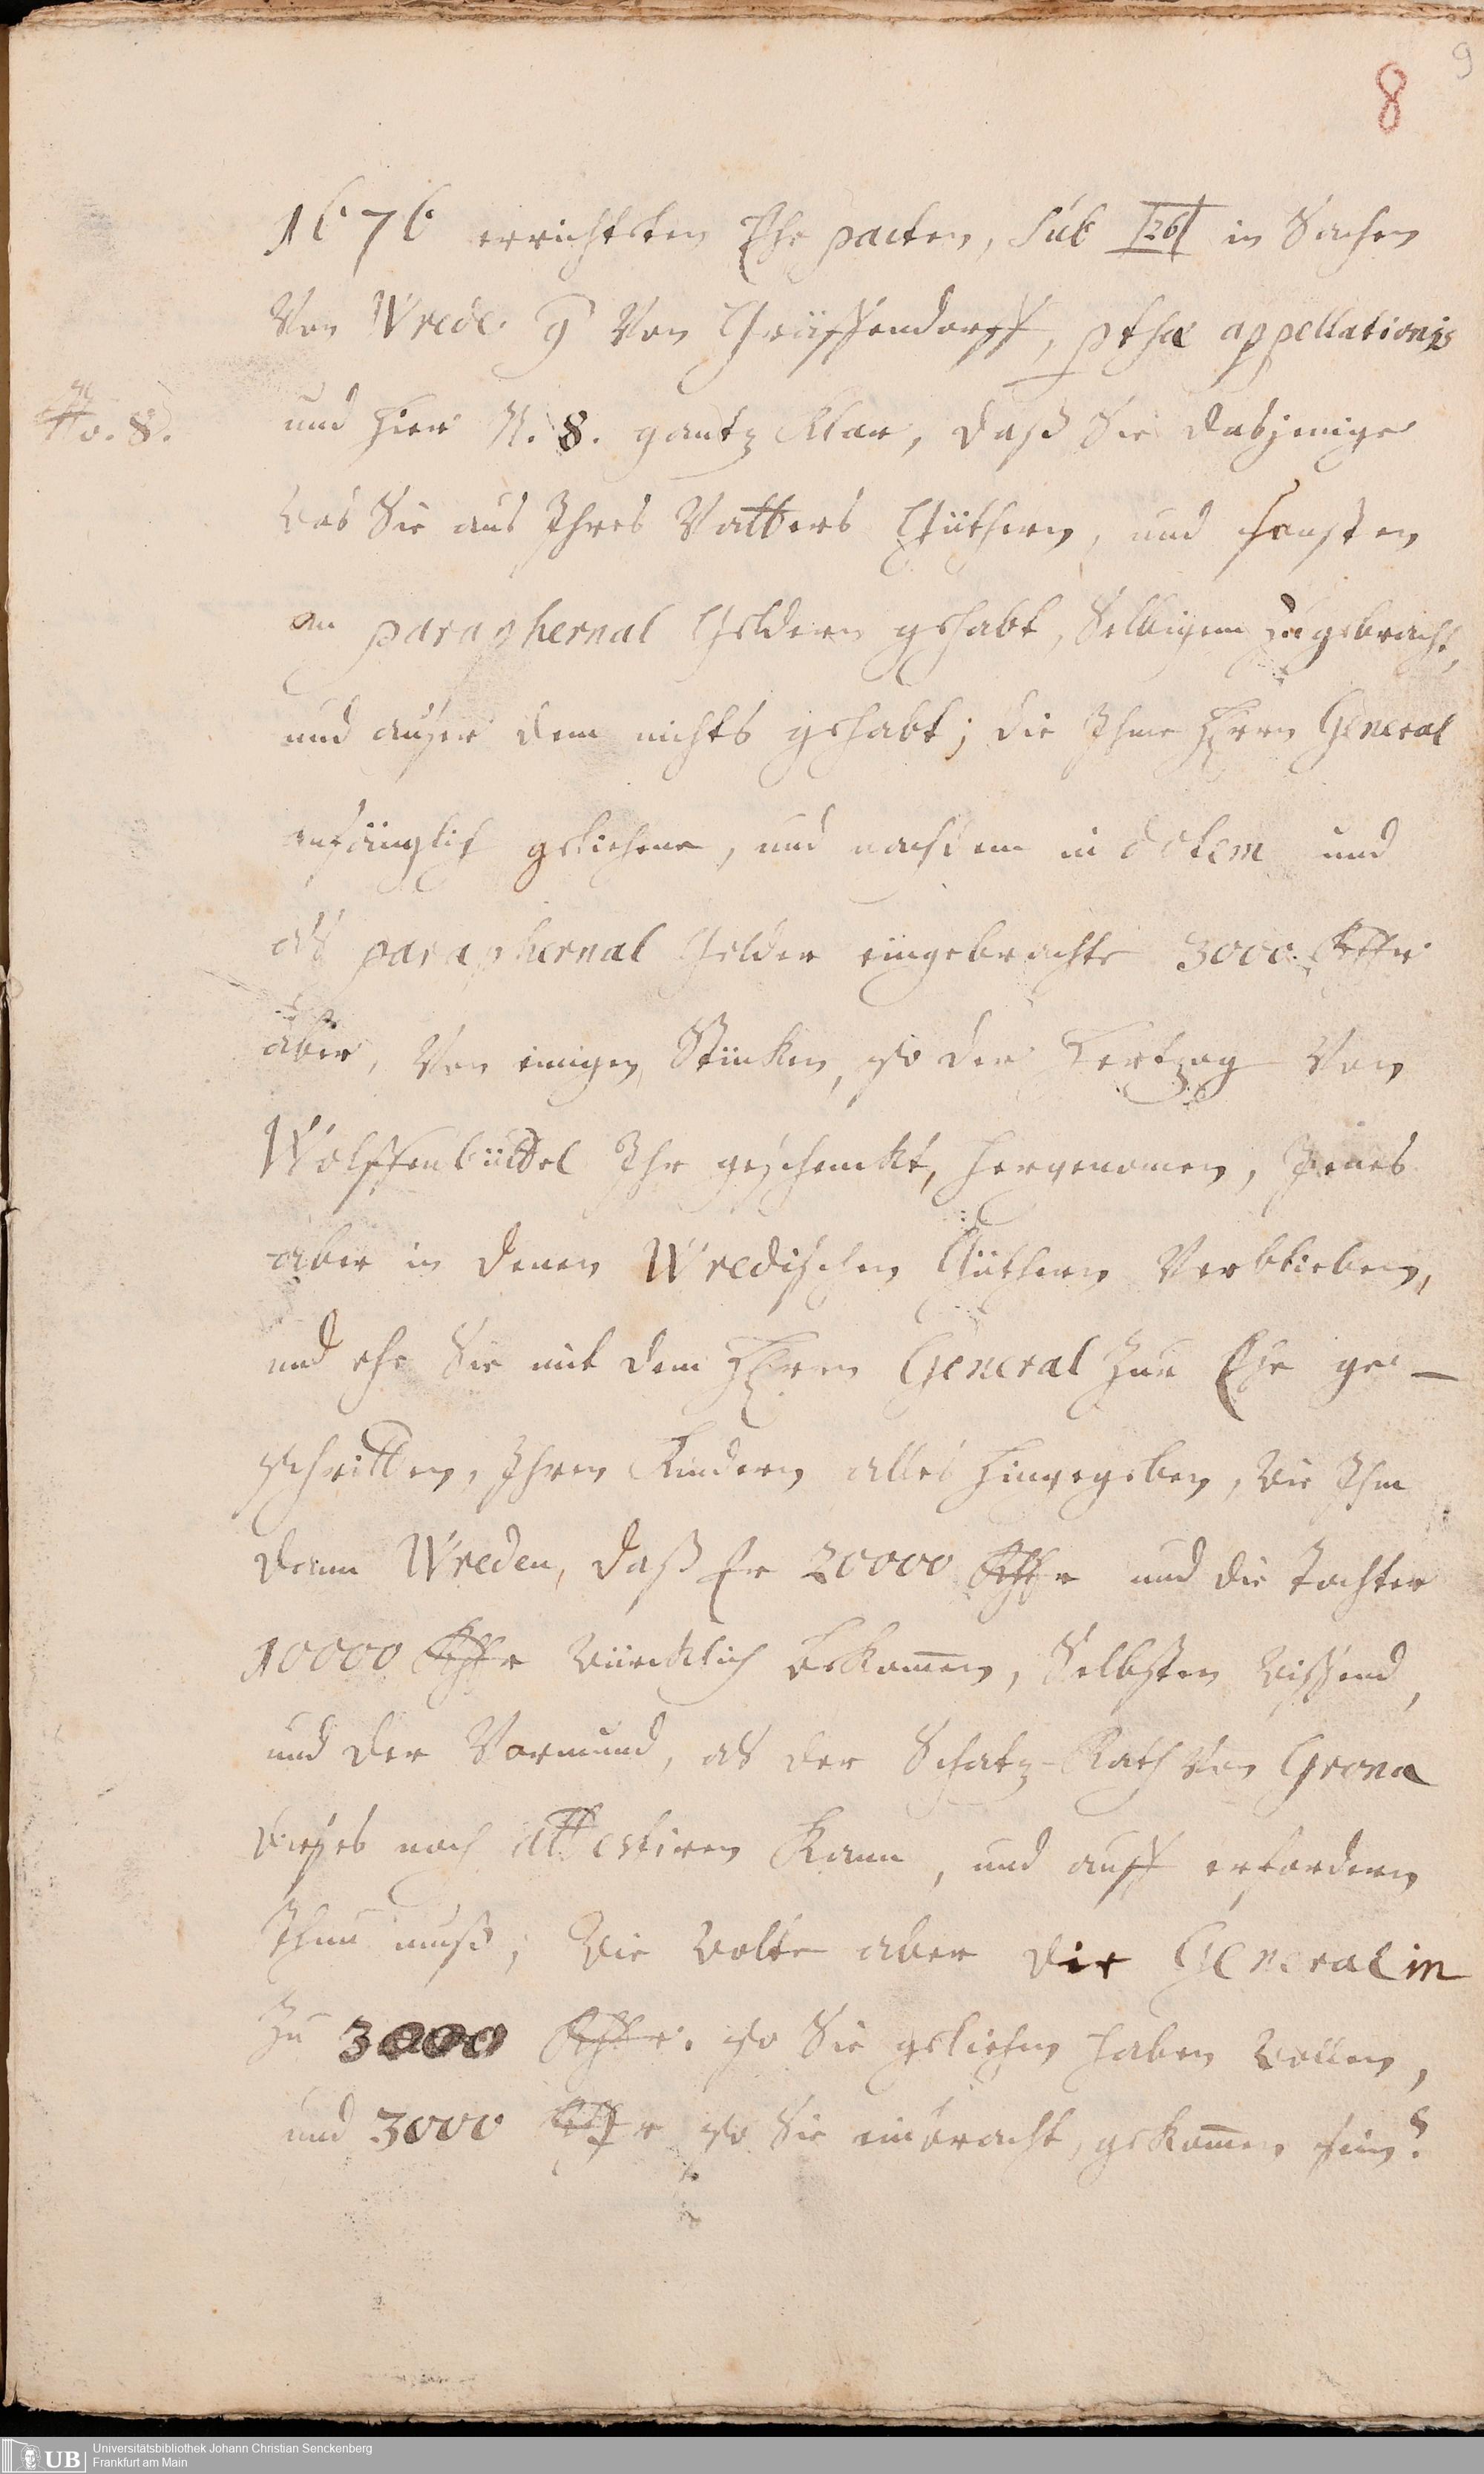 9
8
1676 errichteten Ehe pacten, sub [26] in Sachen
Von Wrede ꝯ Von Gräffendorff, ptsæ appellationis
No. 8.
und hier N. 8. gantz klar, daß Sie dasjenige
was Sie aus Ihres Vatters Güthern, und sonsten
an paraphernal Geldern gehabt, Selbigem zugebracht,
und außer dem nichts gehabt; die Ihme Herrn General
anfänglich geliehene, und nachdem in dotem und
als paraphernal Gelder eingebrachte 3000. Rthlr
aber, Von einigen Stücken, so der Hertzog Von
Wolffenbüttel Ihr geschenckt, hergenomen, Jenes
aber in denen Wredischen Güthern Verblieben,
und ehe Sie mit dem Herrn General zur Ehe ge-
schritten, Ihren Kindern alles hingegeben, wie Ihm
denn Wreden, daß Er 20000 Rthlr und die Tochter
10000 Rthlr würcklich bekom̄en, Selbsten wißend,
und der Vormund, als der Schatz-Rath Von Grona
dieses noch attestiren kann, und auff erfordern
Thun muß; Wie wolte aber die Generalin
zu 3000 Rthlr. so Sie geliehen haben wollen,
und 3000 Rthlr so Sie einbracht, gekom̄en sein?
UB
Universitätsbibliothek Johann Christian Senckenberg
Frankfurt am Main